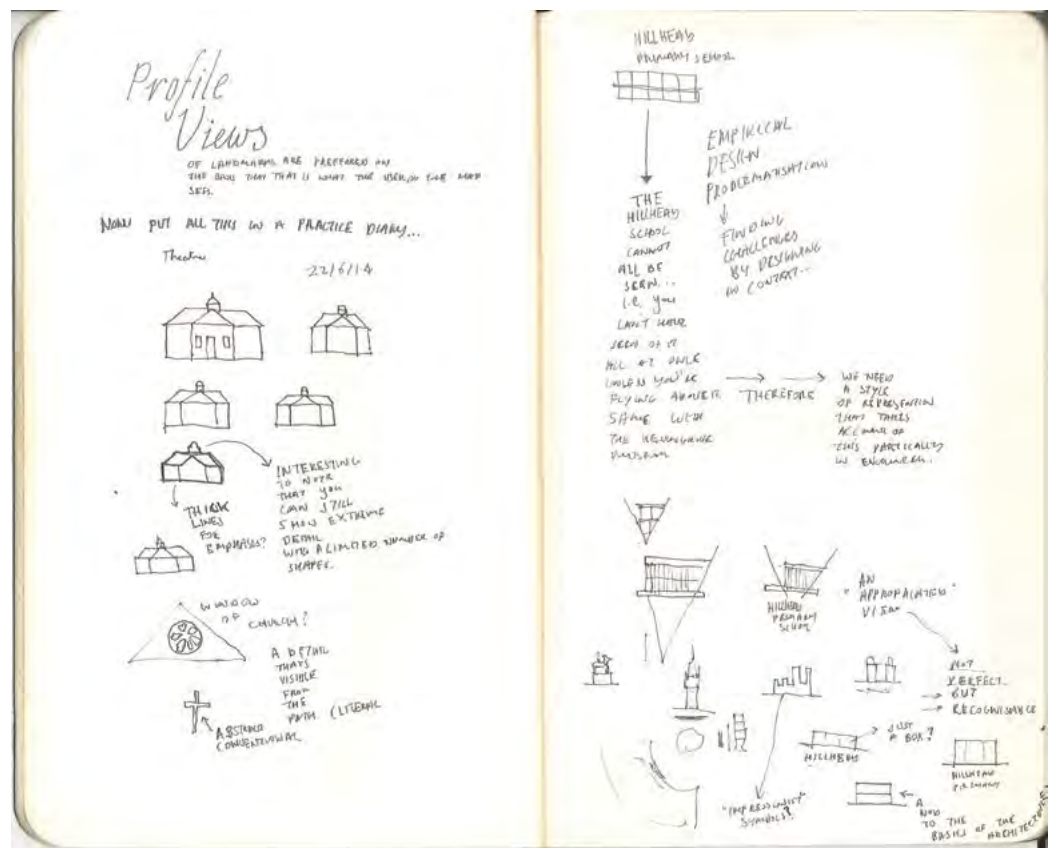 Profile
Views
OF LANDMARKS ARE PREFERED ON
THE THAT THAT IS WHAT THE USER OF THE MAP
SEES.
NOW PUT ALL THIS IN A PRACTICE DIARY...
Theatre
22/6/14
THICK
LINES
FOR
EMPHASIS?
INTERESTING
TO NOTE
THAT YOU
CAN STILL
SHOW EXTREME
DETAIL
WITH A LIMITED NUMBER OF
SHAPES.
WINDOW
OF
CHURCH?
A DETAIL
THATS
VISIBLE
FROM
THE
PATH (LITERAL
ABSTRACT
CONVENTIONAL
HILLHEAD
PRIMARY SCHOOL
EMPIRICAL
DESIGN
PROBLEMATISATION
FINDING
CHALLENGES
BY DESIGNING
IN CONTEXT...
THE
HILLHEAD
SCHOOL
CANNOT
ALL BE
SEEN...
i.e. you
CAN'T HAVE
SEEN OF IT
ALL AT ONCE
UNLESS YOU'RE
FLYING ABOVE IT
SAME WITH
THE KELVINGROVE
MUSEUM
THEREFORE
WE NEED
A STYLE
OF REPRESENTION
THAT TAKES
ACCOUNT OF
THIS PARTICALLY
IN
HILLHEAD
PRIMARY
SCHOOL
AN
"APPROPRIATED"
VIEW
NOT
PERFECT
BUT
RECOGNISABLE
JUST
A BOX?
HILLHEAD
HILLHEAD
PRIMARY
"IMPRESSIONIST"
SYMBOLS?
A
NOD
TO THE
BASICS OF THE
ARCHITECTURE